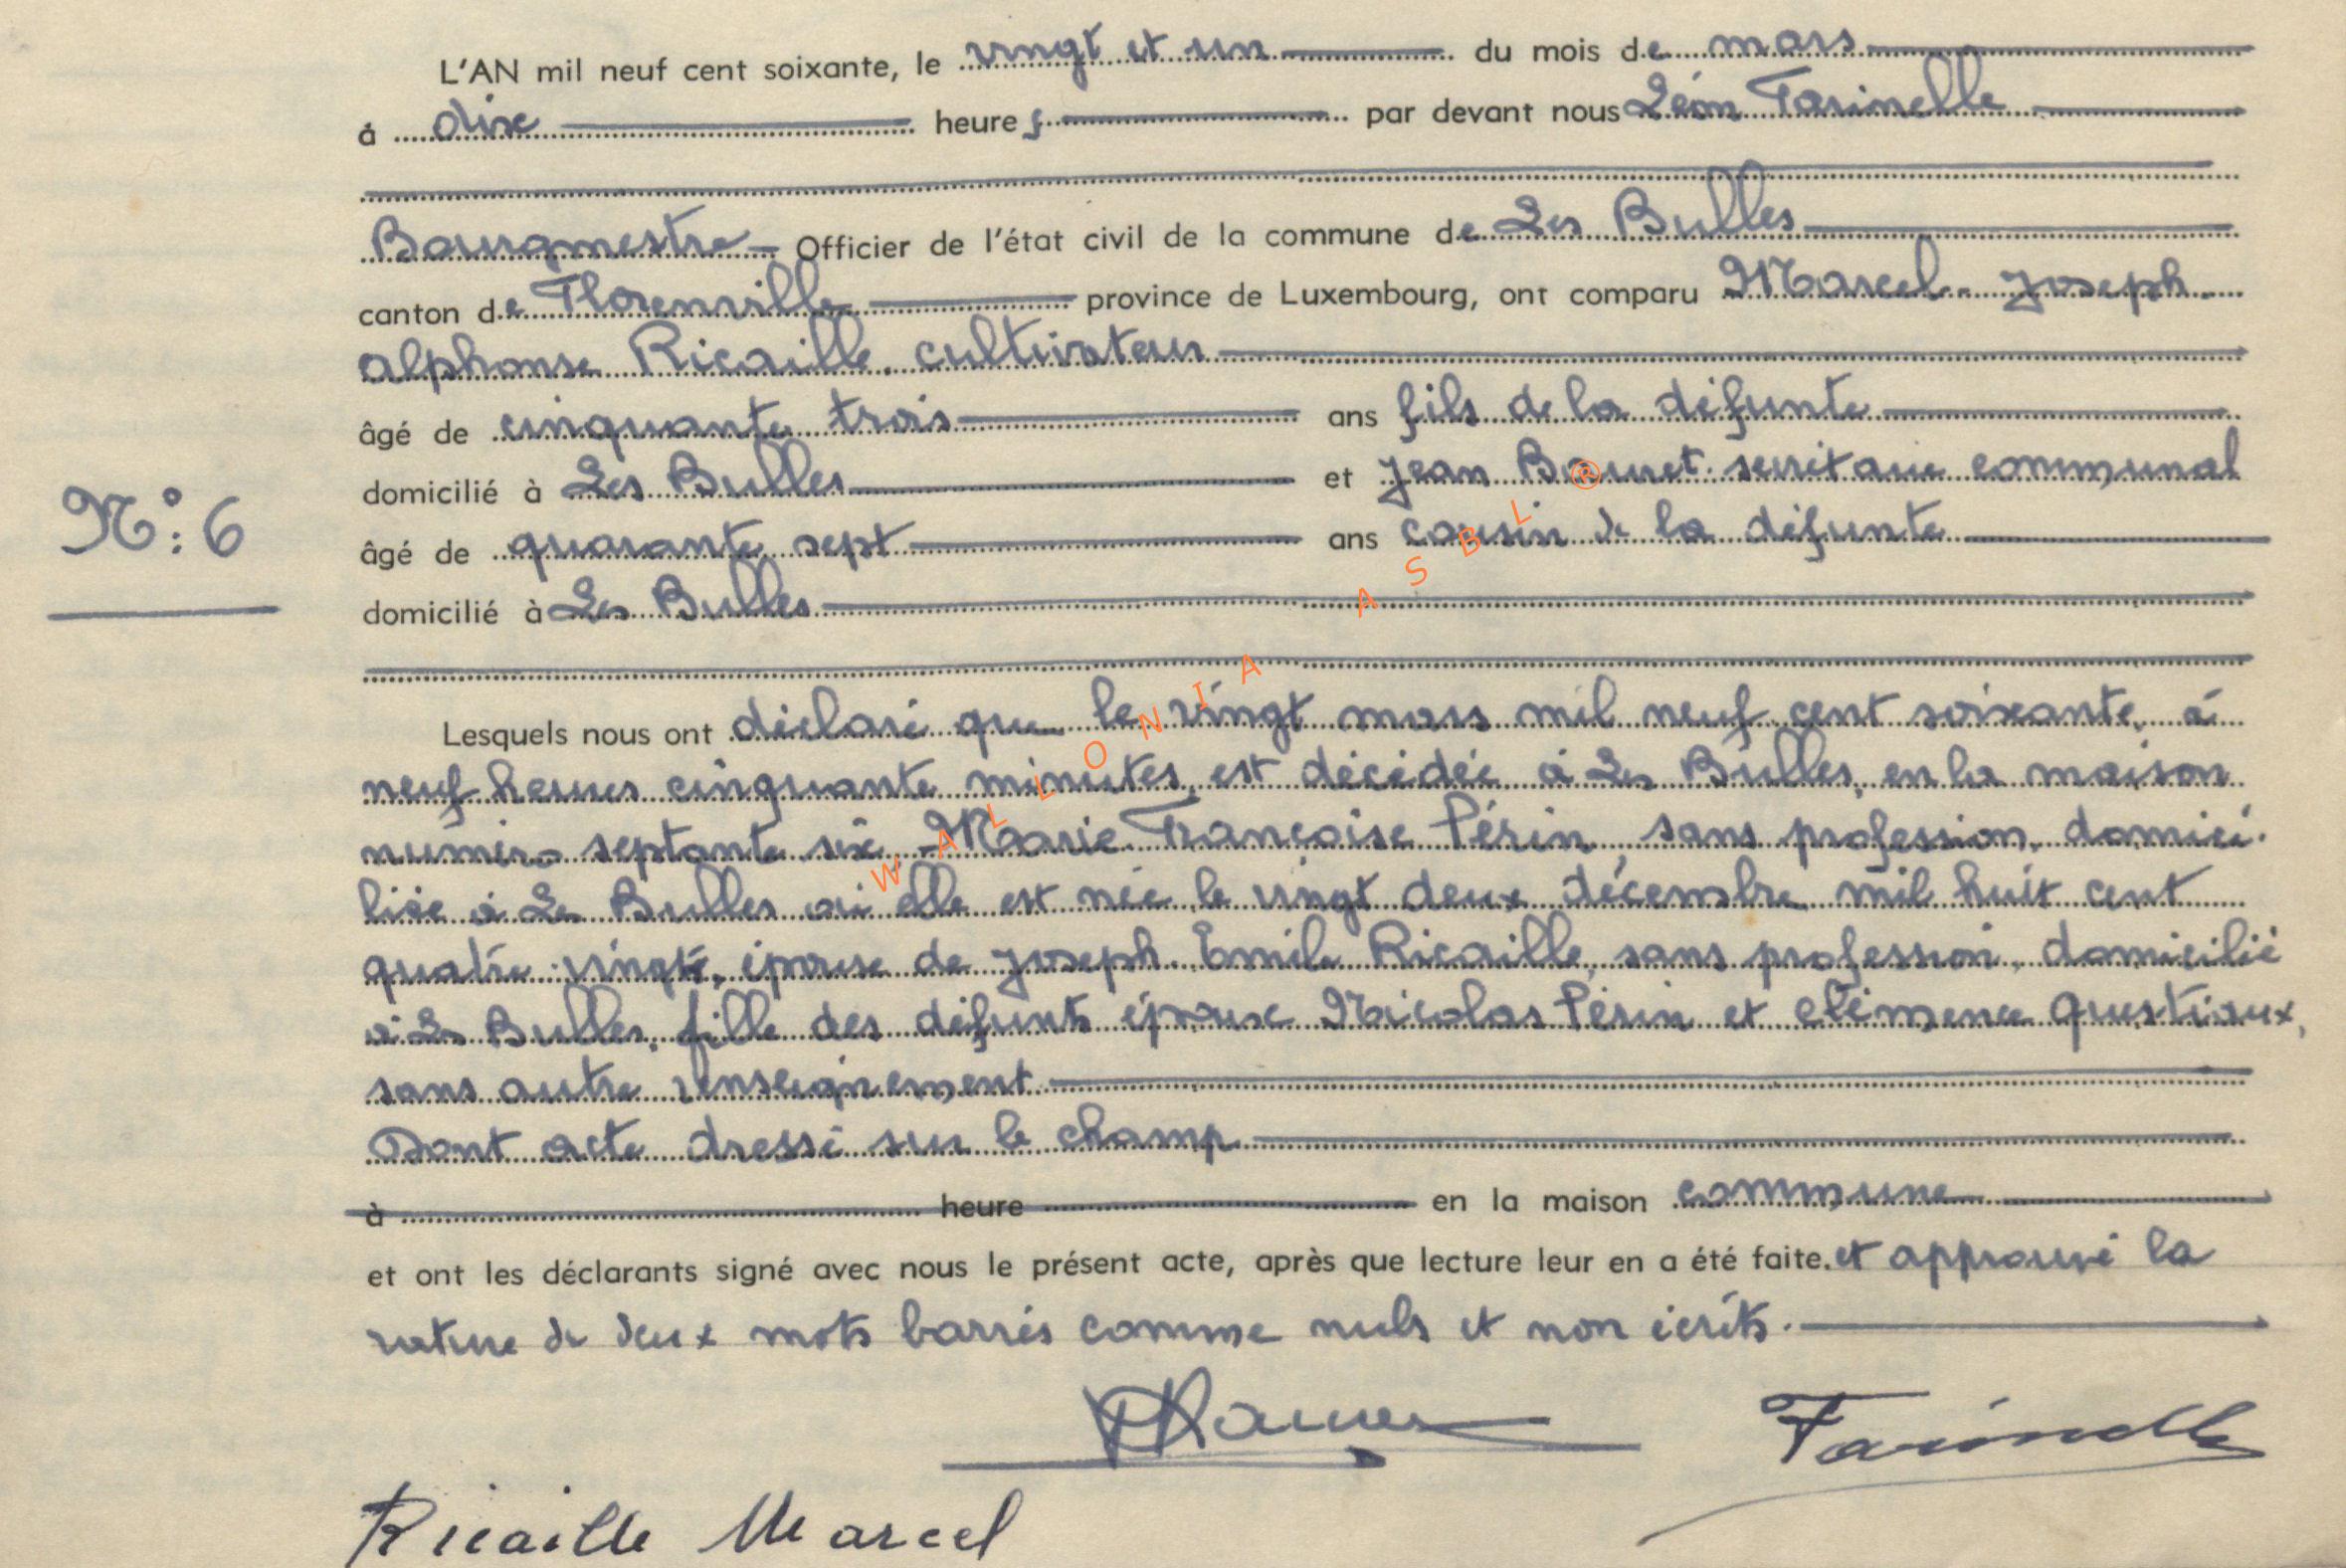 L'AN mil neuf cent soixante, le vingt et un du mois de mars
à dix heures par devant nous Léon Farinelle
Bourgmestre Officier de l'état civil de la commune de Les Bulles
canton de Florenville province de Luxembourg, ont comparu Marcel-Joseph
Alphonse Ricaille, cultivateur
âgé de cinquante trois ans fils de la défunte
domicilié à Les Bulles et Jean secrétaire communal
N°: 6
âgé de quarante sept ans cousin de la défunte
domicilié à Les Bulles
Lesquels nous ont déclaré que le vingt mars mil neuf cent soixante, à
neuf heures cinquante minutes, est décédée à Les Bulles, en la maison
numéro septante six, Marie Françoise Périn, sans profession, domici-
liée à Les Bulles où elle est née le vingt deux décembre mil huit cent
quatre vingt, épouse de Joseph Emile Ricaille, sans profession, domicilié
à Les Bulles, fille des défunts époux Nicolas Périn et Clémence Questiaux,
sans autre renseignement
Dont acte dressé sur le champ
à heure en la maison commune
et ont les déclarants signé avec nous le présent acte, après que lecture leur en a été faite. et approuvé la
rature de deux mots barrés comme nuls et non écrits.
Farinelle
Ricaille Marcel
WALLONIA ASBL ®